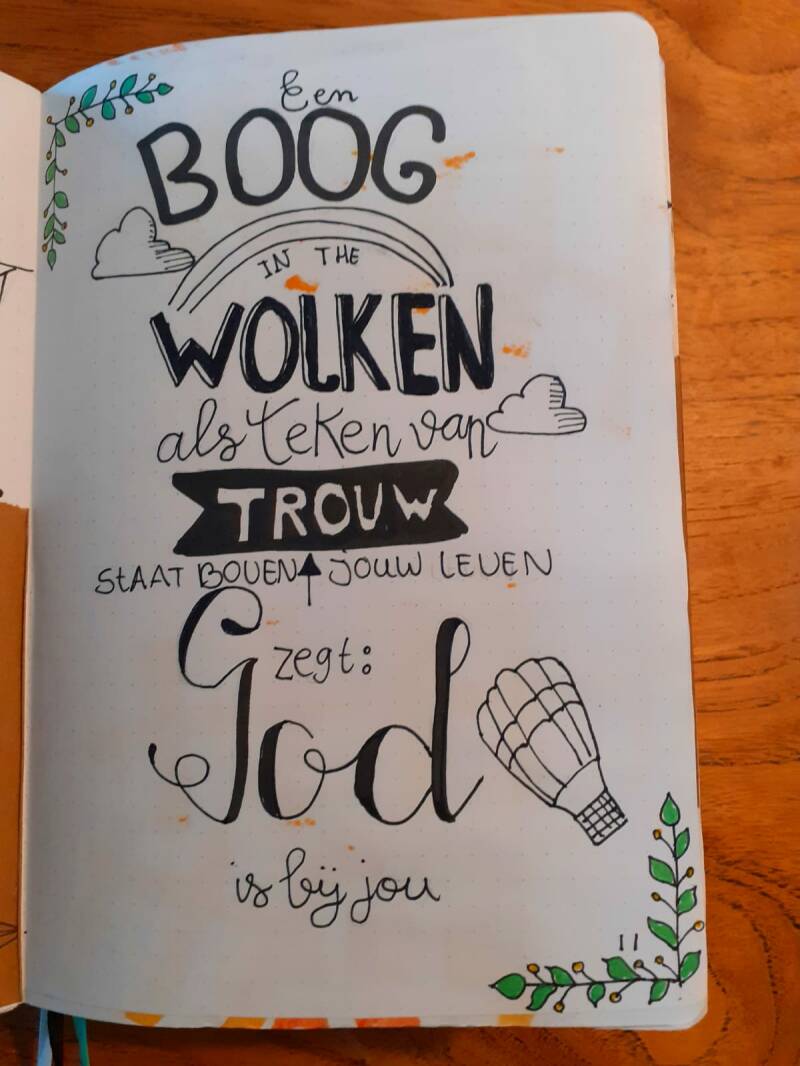 Een
BOOG
IN THE
WOLKEN
als teken van
TROUW
STAAT BOVEN JOUW LEVEN
zegt:
God
is bij jou
11